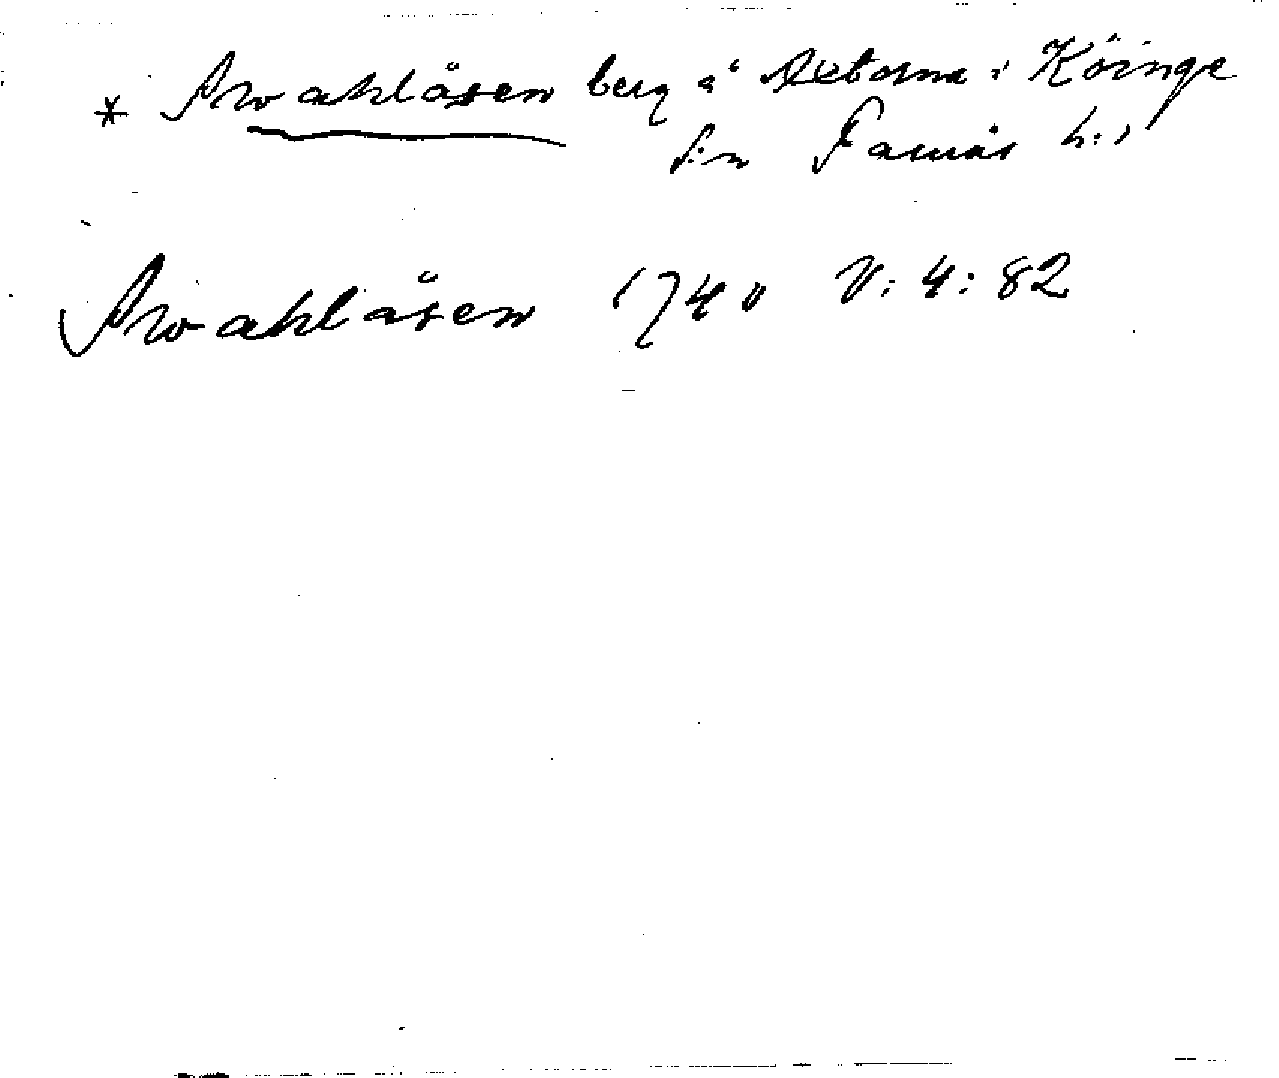 * Swahlåsen berg å i Köinge
sn Faurås h:d
Swahlåsen 1740 V: 4: 82